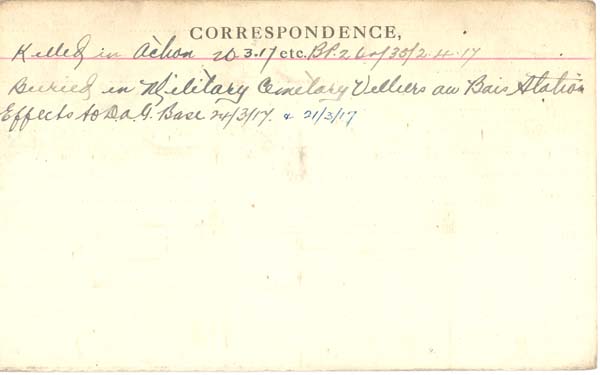 CORRESPONDENCE,
Killed in Action 20.3.17 etc. B.P. 2.4.17
Buried in Military Cemetary Velliers au Bais Station
Effects to D.a.G. Base 24/3/17. & 21/3/17